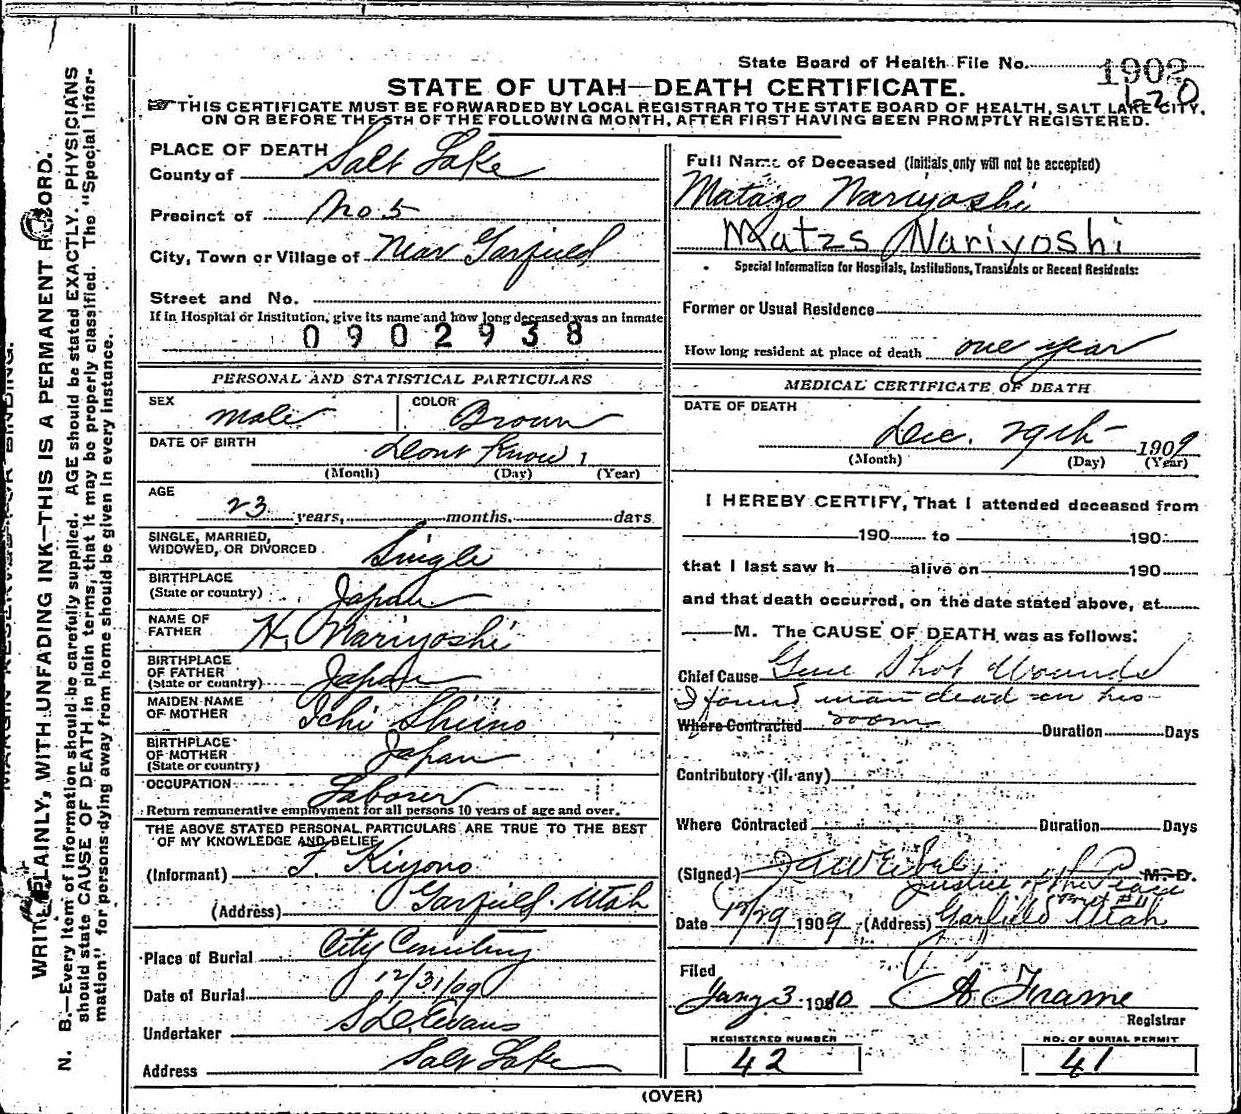 State Board of Health File No. 1902
120
STATE OF UTAH—DEATH CERTIFICATE.
THIS CERTIFICATE MUST BE FORWARDED BY LOCAL REGISTRAR TO THE STATE BOARD OF HEALTH, SALT LAKE CITY,
ON OR BEFORE THE 5TH OF THE FOLLOWING MONTH, AFTER FIRST HAVING BEEN PROMPTLY REGISTERED.
PLACE OF DEATH
County of Salt Lake
Precinct of No. 5
City, Town or Village of Near Garfield
Street and No.
If in Hospital or Institution, give its name and how long deceased was an inmate
0902938
PERSONAL AND STATISTICAL PARTICULARS
SEX Male COLOR Brown
DATE OF BIRTH Dont Know 1
(Month) (Day) (Year)
AGE
23 years, months. days
SINGLE, MARRIED,
WIDOWED, OR DIVORCED Single
BIRTHPLACE
(State or country) Japan
NAME OF
FATHER H. Nariyoshi
BIRTHPLACE
OF FATHER
(State or country) Japan
MAIDEN NAME
OF MOTHER Ichi Shiino
BIRTHPLACE
OF MOTHER
(State or country) Japan
OCCUPATION Laborer
Return remunerative employment for all persons 10 years of age and over.
THE ABOVE STATED PERSONAL PARTICULARS ARE TRUE TO THE BEST
OF MY KNOWLEDGE AND BELIEF
(Informant) T. Kiyono
(Address) Garfield. Utah
Place of Burial City Cemetery
Date of Burial 12/31/09
Undertaker S. D. Evans
Address Salt Lake
Full Name of Deceased (Initials only will not be accepted)
Matazo Nariyoshi
Matzs Nariyoshi
Special Information for Hospitals, Institutions, Transients or Recent Residents:
Former or Usual Residence
How long resident at place of death one year
MEDICAL CERTIFICATE OF DEATH
DATE OF DEATH
Dec. 29th 1909
(Month) (Day) (Year)
I HEREBY CERTIFY, That I attended deceased from
190 to 190
that I last saw h alive on 190
and that death occurred, on the date stated above, at
M. The CAUSE OF DEATH was as follows:
Chief Cause Gun Shot Wounds
I found man dead in his
Where Contracted room Duration Days
Contributory (if any)
Where Contracted Duration Days
(Signed) M. D.
Justice of the Peace
Date 12/29 1909 (Address) Garfield Utah
Filed
Jany 3 1910 A. Frame
Registrar
REGISTERED NUMBER
42
NO. OF BURIAL PERMIT
41
(OVER)
MARGIN RESERVED FOR BINDING.
WRITE PLAINLY, WITH UNFADING INK—THIS IS A PERMANENT RECORD.
N. B.—Every item of information should be carefully supplied. AGE should be stated EXACTLY. PHYSICIANS
should state CAUSE OF DEATH in plain terms, that it may be properly classified. The "Special Infor-
mation" for persons dying away from home should be given in every instance.